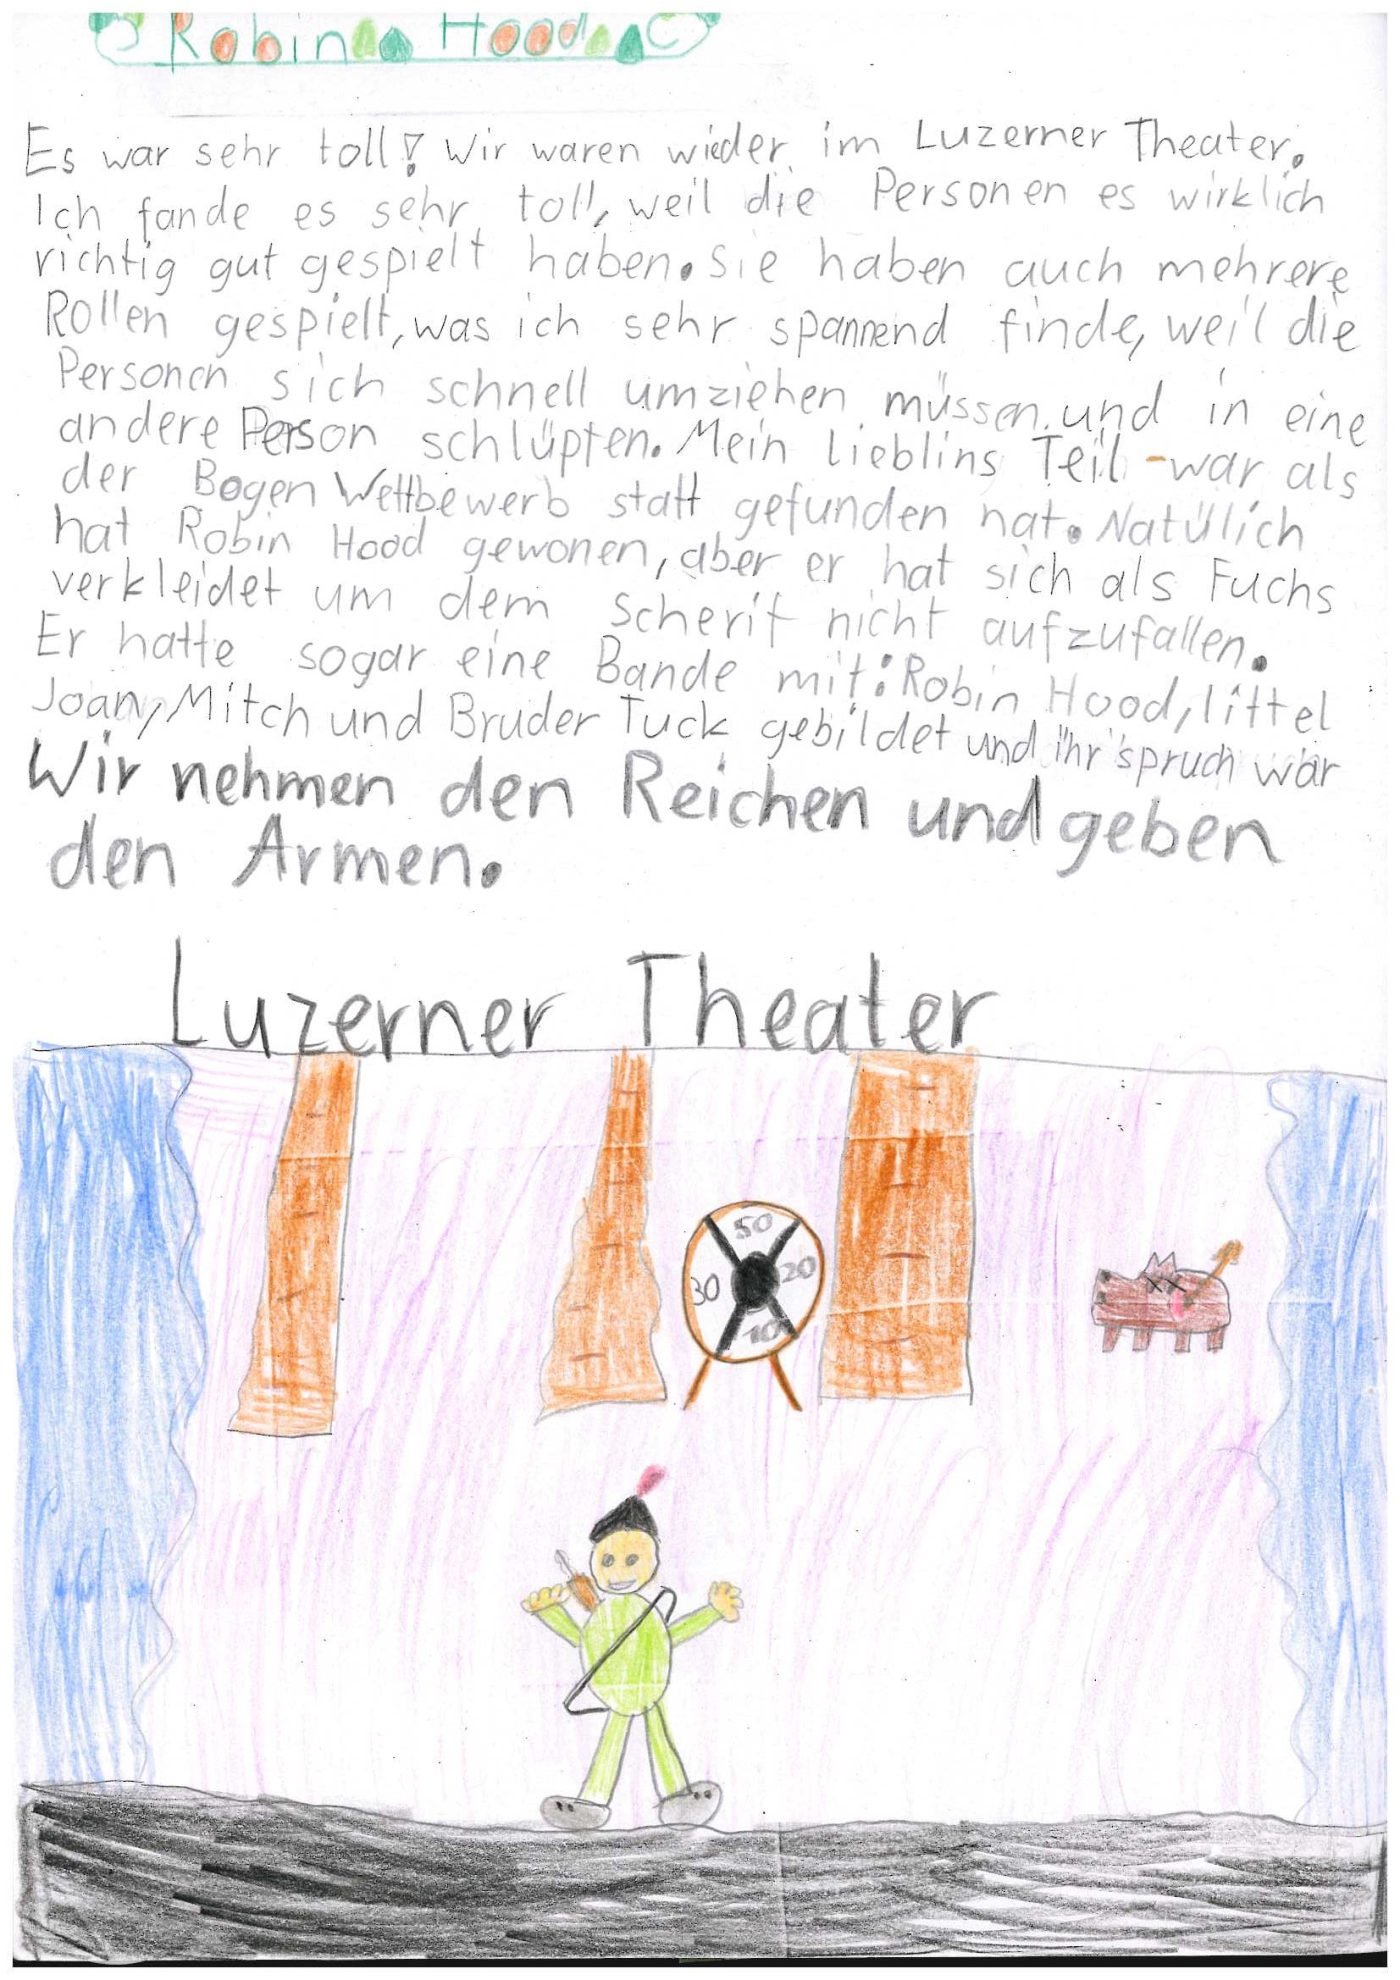 Robin Hood
Es war sehr toll! Wir waren wieder im Luzerner Theater.
Ich fande es sehr toll, weil die Personen es wirklich
richtig gut gespielt haben. Sie haben auch mehrere
Rollen gespielt, was ich sehr spannend finde, weil die
Personen sich schnell umziehen müssen und in eine
andere Person schlüpfen. Mein lieblins Teil war als
der Bogen Wettbewerb statt gefunden hat. Natülich
hat Robin Hood gewonen, aber er hat sich als Fuchs
verkleidet um dem Scherif nicht aufzufallen.
Er hatte sogar eine Bande mit: Robin Hood, littel
Joan, Mitch und Bruder Tuck gebildet und ihr spruch war
Wir nehmen den Reichen und geben
den Armen.
Luzerner Theater
50
30 20
10